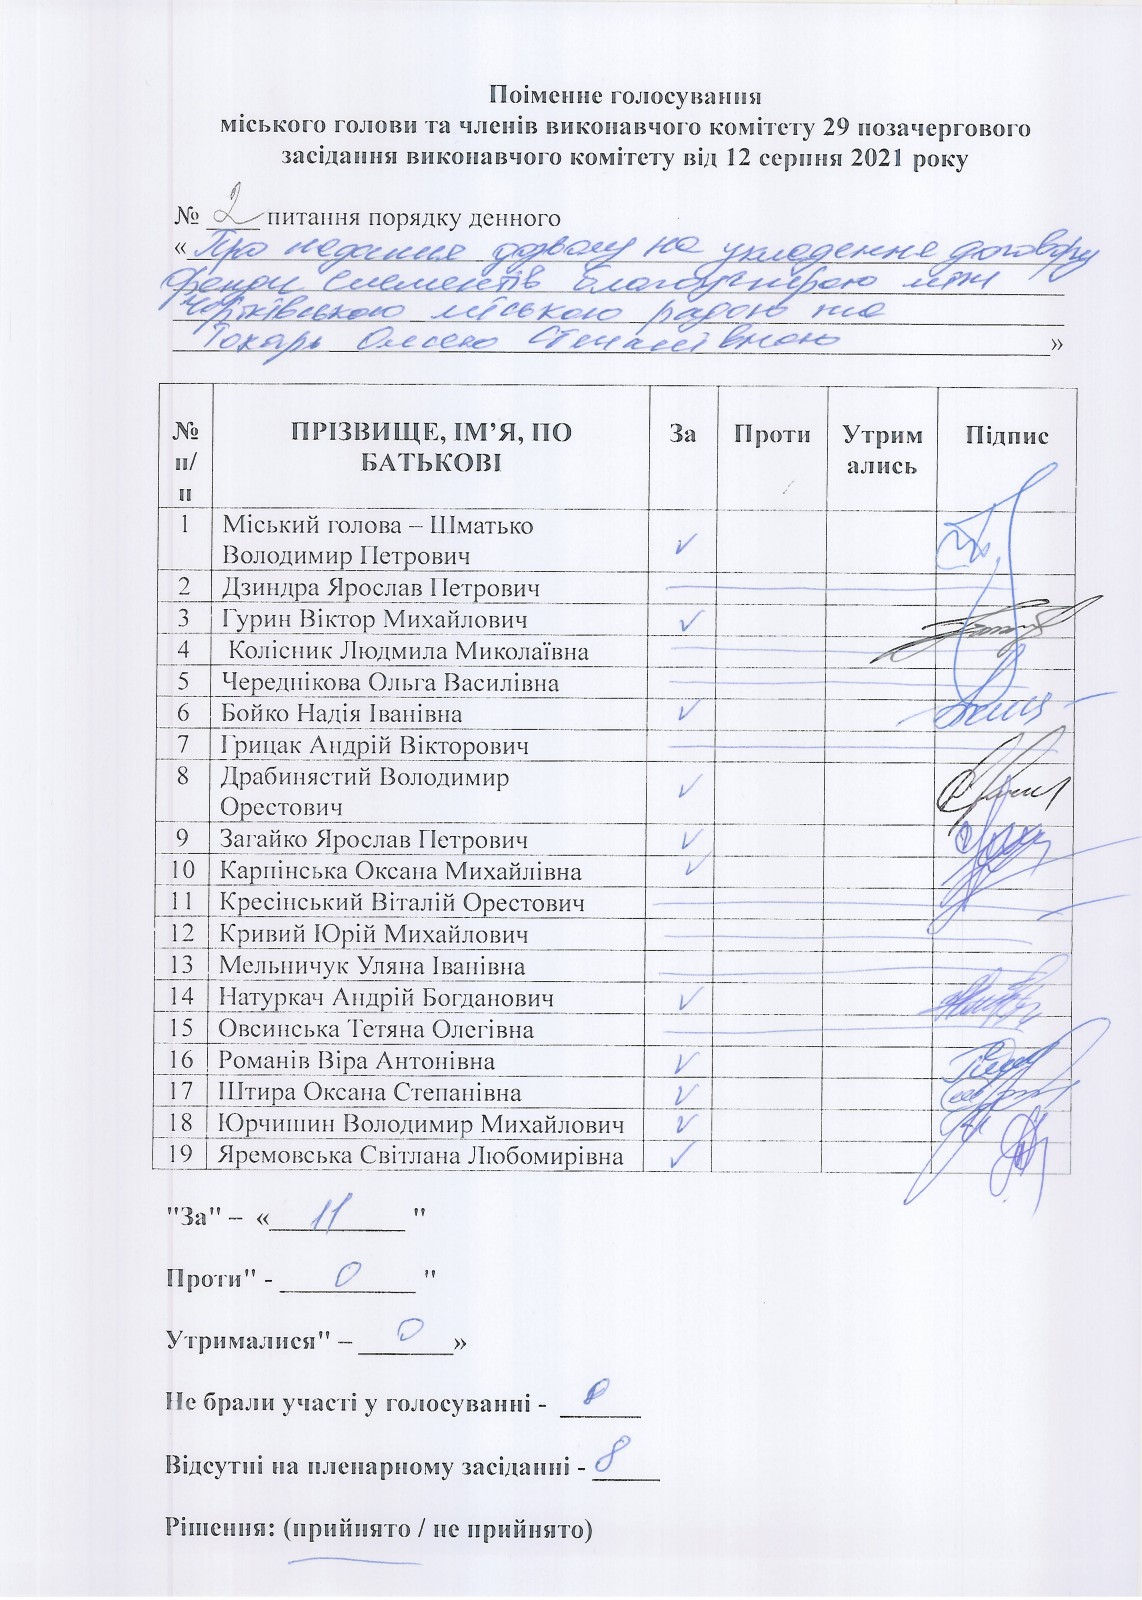 Поіменне голосування
міського голови та членів виконавчого комітету 29 позачергового
засідання виконавчого комітету від 12 серпня 2021 року
№ 2 питання порядку денного
«Про надання дозволу на укладення договору
оренди елементів благоустрою між
Чортківською міською радою та
Токарь Олесею Степанівною»
№ п/п ПРІЗВИЩЕ, ІМ’Я, ПО БАТЬКОВІ За Проти Утримались Підпис
1 Міський голова – Шматько
Володимир Петрович ✓
2 Дзиндра Ярослав Петрович
3 Гурин Віктор Михайлович ✓
4 Колісник Людмила Миколаївна
5 Череднікова Ольга Василівна
6 Бойко Надія Іванівна ✓
7 Грицак Андрій Вікторович
8 Драбинястий Володимир
Орестович ✓
9 Загайко Ярослав Петрович ✓
10 Карпінська Оксана Михайлівна ✓
11 Кресінський Віталій Орестович
12 Кривий Юрій Михайлович
13 Мельничук Уляна Іванівна
14 Натуркач Андрій Богданович ✓
15 Овсинська Тетяна Олегівна
16 Романів Віра Антонівна ✓
17 Штира Оксана Степанівна ✓
18 Юрчишин Володимир Михайлович ✓
19 Яремовська Світлана Любомирівна ✓
"За" – « 11 "
Проти" - 0 "
Утрималися" – 0 »
Не брали участі у голосуванні - 0
Відсутні на пленарному засіданні - 8
Рішення: (прийнято / не прийнято)